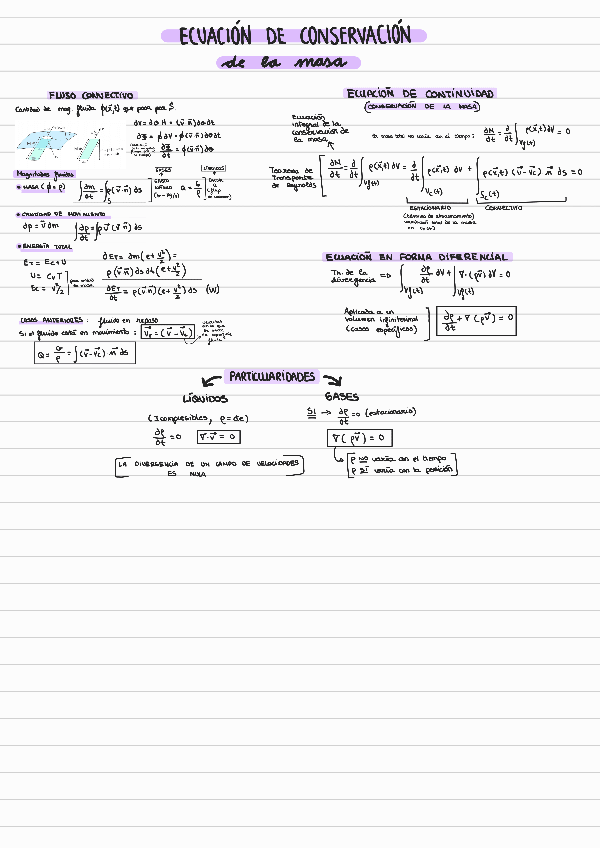 ECUACIÓN DE CONSERVACIÓN
de la masa
FLUJO CONVECTIVO
Cantidad de mag. fluida φ(x⃗,t) que pasa por S
dV = dσ H = (v⃗·n⃗) dσ dt
dΦ = φ dV = φ(v⃗·n⃗) dσ dt
∂Φ/∂t = φ(v⃗·n⃗) dσ
Magnitudes fluidas
• MASA (φ = ρ) ∫ ∂m/∂t = ∫_S ρ(v⃗·n⃗) ds
G = G/ρ
• CANTIDAD DE MOVIMIENTO
dp = v⃗ dm ∫ ∂p/∂t = ∫ ρ v⃗ (v⃗·n⃗) ds
• ENERGÍA TOTAL
E_T = E_c + U
U = C_v T
E_c = v²/2
dE_T = dm(e + v²/2) =
ρ(v⃗·n⃗) ds dt (e + v²/2)
∂E_T/∂t = ρ(v⃗·n⃗)(e + v²/2) ds (W)
CASOS ANTERIORES: fluido en reposo
Si el fluido está en movimiento: v⃗_r = (v⃗ - v⃗_c)
Q = G/ρ = ∫ (v⃗ - v⃗_c) n⃗ ds
ECUACIÓN DE CONTINUIDAD
(CONSERVACIÓN DE LA MASA)
Ecuación
integral de la
conservación de
la masa
la masa no varía en el tiempo: ∂N/∂t = ∂/∂t ∫_Vf(t) ρ(x⃗,t) dV = 0
Teorema de
Transporte
de Reynolds
∂N/∂t = ∂/∂t ∫_Vf(t) ρ(x⃗,t) dV = ∂/∂t ∫_Vc(t) ρ(x⃗,t) dV + ∫_Sc(t) ρ(x⃗,t) (v⃗ - v⃗_c) n⃗ ds = 0
ESTACIONARIO
CONVECTIVO
ECUACIÓN EN FORMA DIFERENCIAL
Tm de la
divergencia ⇒ ∫_Vf(t) ∂ρ/∂t dV + ∫_Vf(t) ∇·(ρv⃗) dV = 0
Aplicada a un
volumen infinitesimal
(casos específicos)
∂ρ/∂t + ∇(ρv⃗) = 0
PARTICULARIDADES
LÍQUIDOS
∂ρ/∂t = 0 ∇·v⃗ = 0
LA DIVERGENCIA DE UN CAMPO DE VELOCIDADES
ES NULA
GASES
SI → ∂ρ/∂t = 0 (estacionario)
∇(ρv⃗) = 0
ρ NO varía en el tiempo
ρ SÍ varía con la posición